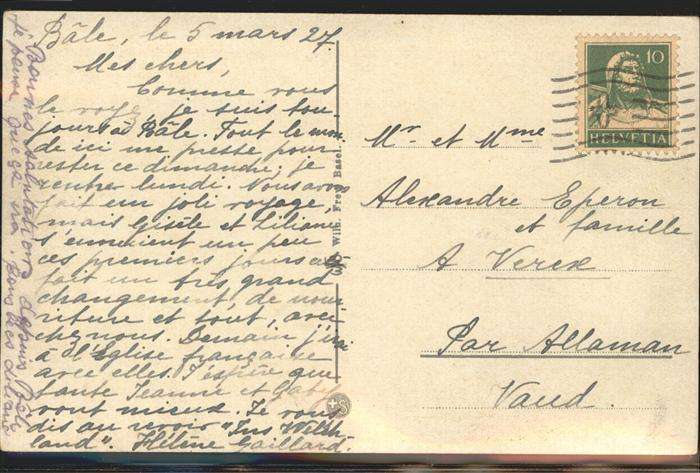 Bâle, le 5 mars 27.
Mes chers,
Comme vous
le voyez, je suis tou
jours à Bâle. Tout le mon
de ici me presse pour
rester ce dimanche; je
rentre lundi. Nous avons
fait un joli voyage,
mais Gisèle et Liliane
s'ennuient un peu
ces premiers jours
fait un très grand
changement, de nour
riture et tout, avec
chez nous. Demain j'irai
à l'Église française
avec elles. J'espère que
tante Jeanne et Gaby
vont mieux. Je vous
dis au revoir "Ins Welsch
land". Hélène Gaillard.
Bonnes salutations
Wilh. Frey, Basel
10
HELVETIA
Mr et Mme
Alexandre Eperon
et famille
A Verex
Par Allaman
Vaud.